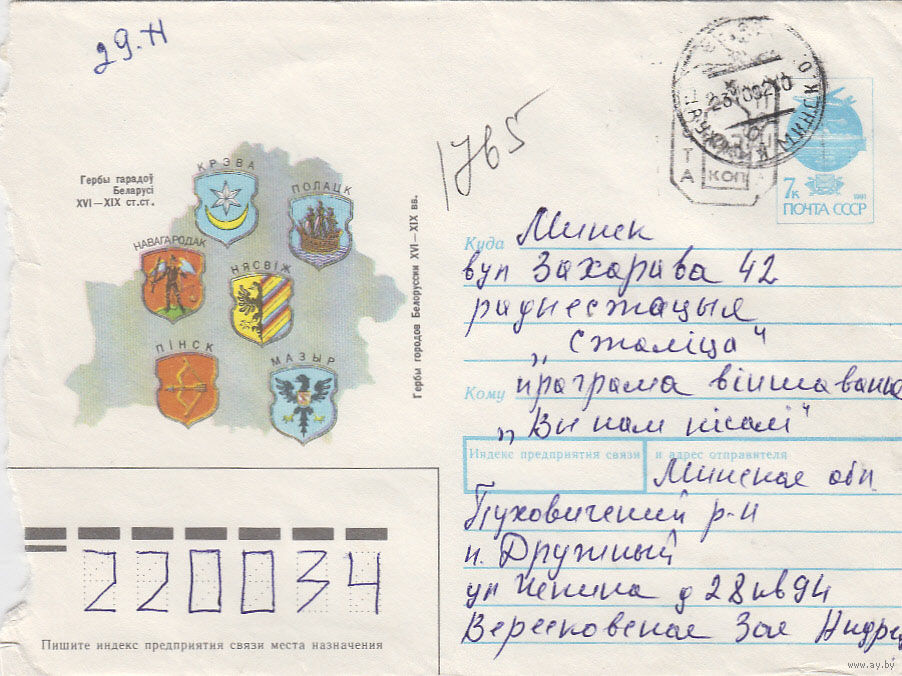 29.Н
1765
Гербы гарадоў
Беларусі
XVI—XIX ст.ст.
КРЭВА
ПОЛАЦК
НАВАГАРОДАК
НЯСВІЖ
ПІНСК
МАЗЫР
Гербы городов Белоруссии XVI—XIX вв.
КОП
7к 1991
ПОЧТА СССР
Куда Минск
вул Захарава 42
радиестацыя
„Сталіца“
Кому праграма віншаванне
„Вы нам пісалі“
Индекс предприятия связи и адрес отправителя
Минская обл
Пуховичский р-н
п. Дружный
ул Ленина д 28 кв 94
Вересковская Зоя
220034
Пишите индекс предприятия связи места назначения
www.ay.by